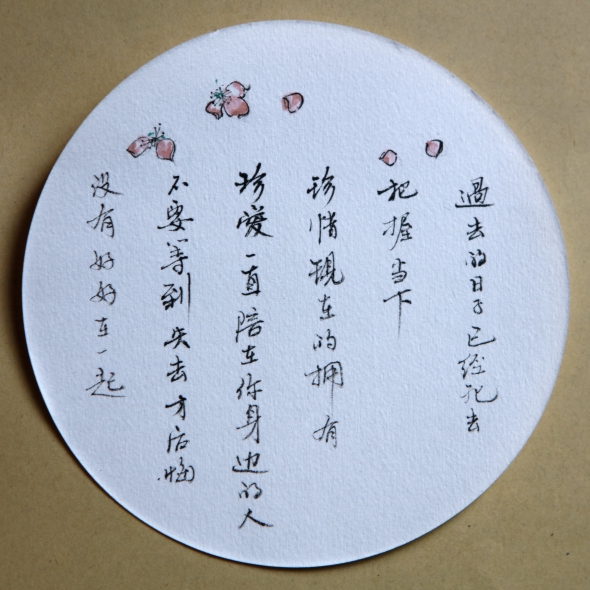 過去的日子已经死去
把握当下
珍惜现在的拥有
珍爱一直陪在你身边的人
不要等到失去才后悔
没有好好在一起